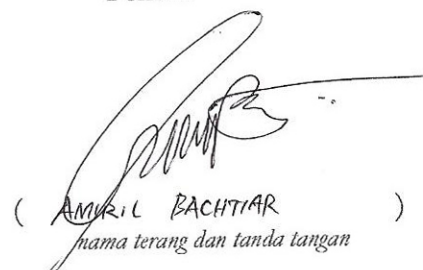 ( AMIRIL BACHTIAR )
nama terang dan tanda tangan